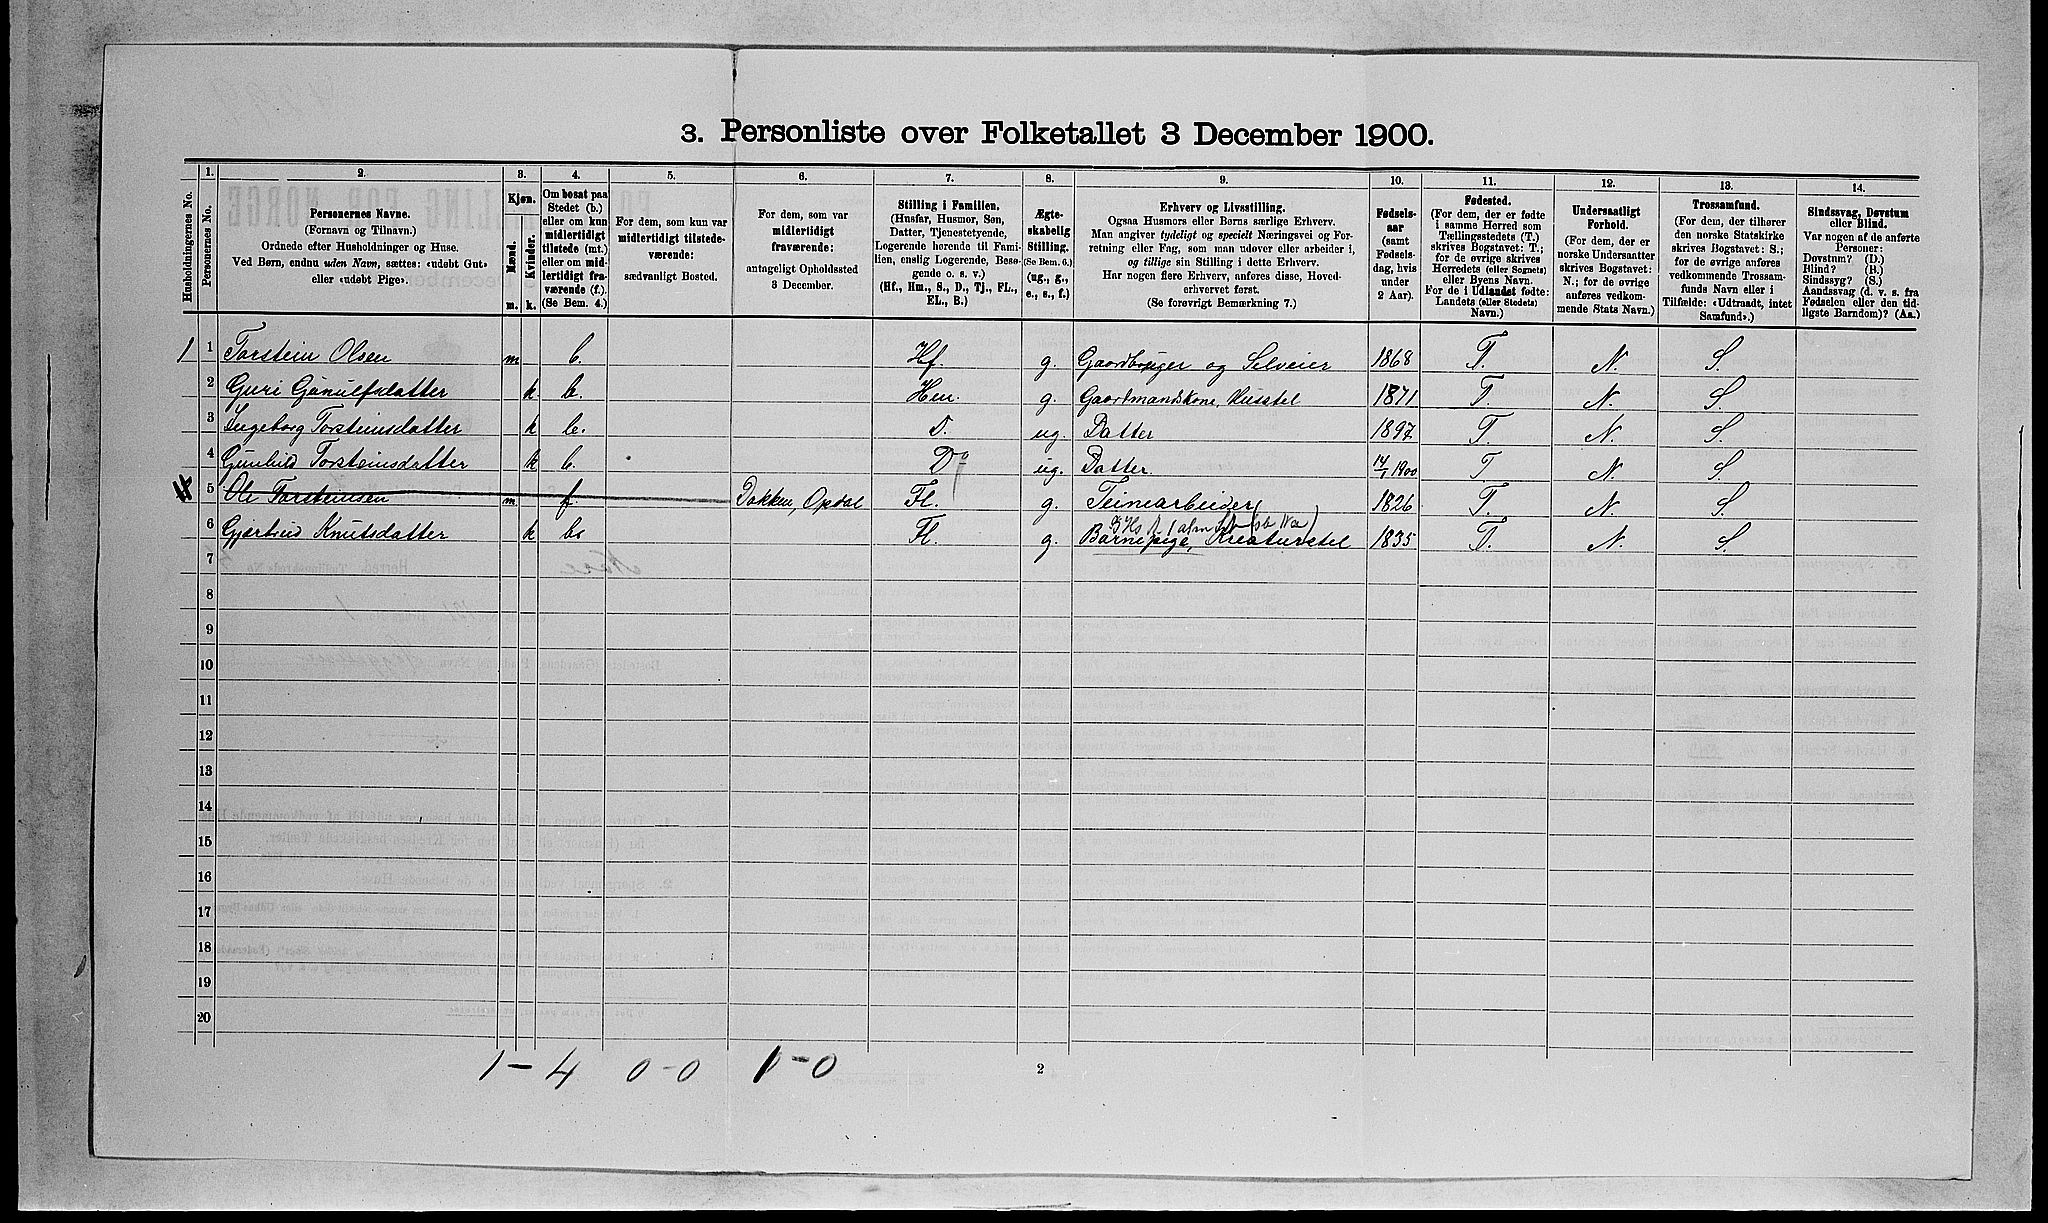 3. Personliste over Folketallet 3 December 1900.
Husholdningernes No.
1.
Personernes No.
2.
Personernes Navne.
(Fornavn og Tilnavn.)
Ordnede efter Husholdninger og Huse.
Ved Børn, endnu uden Navn, sættes: «udøbt Gut»
eller «udøbt Pige».
3.
Kjøn.
Mænd.
Kvinder.
m. k.
4.
Om bosat paa
Stedet (b.)
eller om kun
midlertidigt
tilstede (mt.)
eller om mid-
lertidigt fra-
værende (f.)
(Se Bem. 4.)
5.
For dem, som kun var
midlertidigt tilstede-
værende:
sædvanligt Bosted.
6.
For dem, som var
midlertidigt
fraværende:
antageligt Opholdssted
3 December.
7.
Stilling i Familien.
(Husfar, Husmor, Søn,
Datter, Tjenestetyende,
Logerende hørende til Fami-
lien, enslig Logerende, Besø-
gende o. s. v.)
(Hf., Hm., S., D., Tj., FL.,
EL., B.)
8.
Ægte-
skabelig
Stilling.
(Se Bem. 6.)
(ug., g.,
e., s., f.)
9.
Erhverv og Livsstilling.
Ogsaa Husmors eller Børns særlige Erhverv.
Man angiver tydeligt og specielt Næringsvei og For-
retning eller Fag, som man udøver eller arbeider i,
og tillige sin Stilling i dette Erhverv.
Har nogen flere Erhverv, anføres disse, Hoved-
erhvervet først.
(Se forøvrigt Bemærkning 7.)
10.
Fødsels-
aar
(samt
Fødsels-
dag, hvis
under
2 Aar).
11.
Fødested.
(For dem, der er fødte
i samme Herred som
Tællingsstedets (T.)
skrives Bogstavet: T.;
for de øvrige skrives
Herredets (eller Sognets)
eller Byens Navn.
For de i Udlandet fødte:
Landets (eller Stedets)
Navn.)
12.
Undersaatligt
Forhold.
(For dem, der er
norske Undersaatter
skrives Bogstavet:
N.; for de øvrige
anføres vedkom-
mende Stats Navn.)
13.
Trossamfund.
(For dem, der tilhører
den norske Statskirke
skrives Bogstavet: S.;
for de øvrige anføres
vedkommende Trossam-
funds Navn eller i
Tilfælde: «Udtraadt, intet
Samfund».)
14.
Sindssvag, Døvstum
eller Blind.
Var nogen af de anførte
Personer:
Døvstum? (D.)
Blind? (B.)
Sindssyg? (S.)
Aandssvag (d. v. s. fra
Fødselen eller den tid-
ligste Barndom)? (Aa.)
1 1 Torstein Olsen m b. Hf. g. Gaardbruger og Selveier 1868 T. N. S.
2 Guri Gunulfsdatter k b. Hm. g. Gaardmandskone, Husstel 1871 T. N. S.
3 Ingeborg Torsteinsdatter k b. D. ug. Datter 1897 T. N. S.
4 Gunhild Torsteinsdatter k b. Do ug. Datter. 14/1 1900 T N. S.
5 Ole Torsteinsen m f. Dokken, Opdal FL. g. 1826 T. N. S.
6 Gjertrud Knutsdatter k b. FL. g. Barnepige, Kreaturstel 1835 T. N. S.
7
8
9
10
11
12
13
14
15
16
17
18
19
20
1-4 0-0 1-0
2